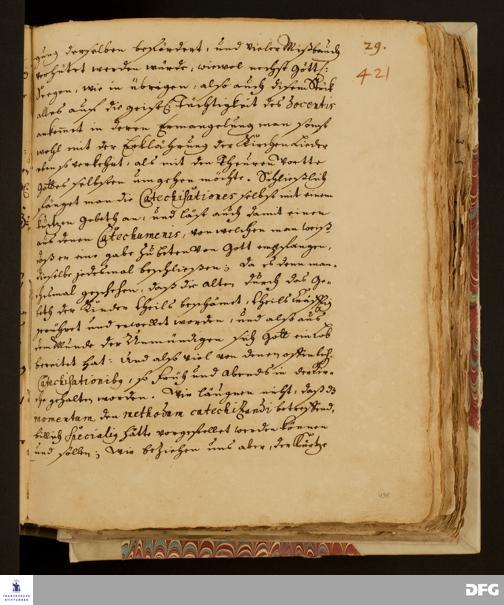 29.
421
gung derselben befördert, und vieler Mißbrauch
verhütet werden würde; wiewol nechst Göttl:
Seegen, wie in übrigen, also auch disem Stück
alles auf die geistl: Tüchtigkeit des Docentis
ankommt in deren Ermangelung man sonst
wohl mit der Erklährung der Kirchen Lieder
eben so verkehrt, als mit dem Theuren Wortte
Gottes selbsten umgehen möchte. Schließlich
fänget man die Catechisationes selbst mit einem
kurtzen Gebeth an, und läst auch damit einen
aus denen Catechumenis, von welchen man weiß
daß er eine gabe zu beten von Gott empfangen,
dieselbe jedesmal beschließen; da es denn man-
chesmal geschehen, daß die alten durch das Ge-
beth der Kinder theils beschämet, theils
gerühret und erwecket worden, und also aus
dem Munde der Unmündigen sich Gott ein Lob
bereitet hat. Und also viel von denen öffentlich.
Catechisationibus, so früh und Abends in der Kir-
che gehalten worden. Wir läugnen nicht, daß
momentum den methodum catechizandi betreffend,
billich specialis hätte vorgestellet werden können
und sollen; Wir beziehen uns aber, der Kürtze
FRANCKESCHE STIFTUNGEN
DFG